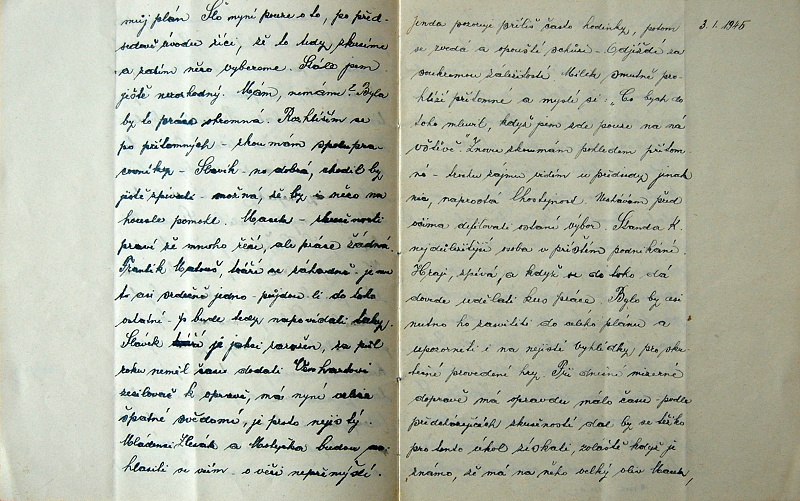 můj plán Šlo nyní pouze o to, po před-
sedově úvodu říci, že to tedy zkusíme
a zatím něco vybereme. Stále jsem
ještě nerozhodný. Mám, nemám? Byla
by to práce ohromná. Rozhlížím se
po přítomných - zkoumám spolupra-
covníky - Slavík - no dobrá, chodil by
jistě zpívati - možná, že by i něco na
housle pomohl. Masek - zkušenosti
praví že mnoho řečí, ale práce žádná.
František Matouš, tváří se záhadně - je mu
to asi srdečně jedno - půjdou li do toho
ostatní - to bude tedy napovídati taky.
Slávek je jaksi zaražen, za půl
roku neměl času dodati
zesilovač k opravě, má nyní
špatné svědomí, je proto nejistý.
Mládenci a Motyčka budou
hlasiti se vším - o věci nepřemýšlí.
Jenda pozoruje příliš často hodinky, potom 3. I. 1945
se zvedá a opouští schůzi - Odjíždí za
soukromou záležitostí Milek smutně pro-
hlíží přítomné a myslí si: „Co bych do
toho mluvil, když jsem zde pouze na ná
vštěvě". Znovu zkoumám pohledem přítom-
né - trochu zájmu vidím u předsedy jinak
nic, naprostá lhostejnost. Nastávám před
očima defilovati ostatní výbor. Standa K.
nejdůležitější osoba v příštím podnikání.
Hraji, zpívá, a když se do toho dá
dovede udělati kus práce. Bylo by asi
nutno ho zasvětiti do celého plánu a
upozorniti i na nejisté vyhlídky pro sku-
tečné provedení hry. Při dnešní mizerné
dopravě má opravdu málo času - podle
předešlých zkušeností dal by se těžko
pro tento úkol získati, zvláště když je
známo, že má na něho velký vliv Masek,